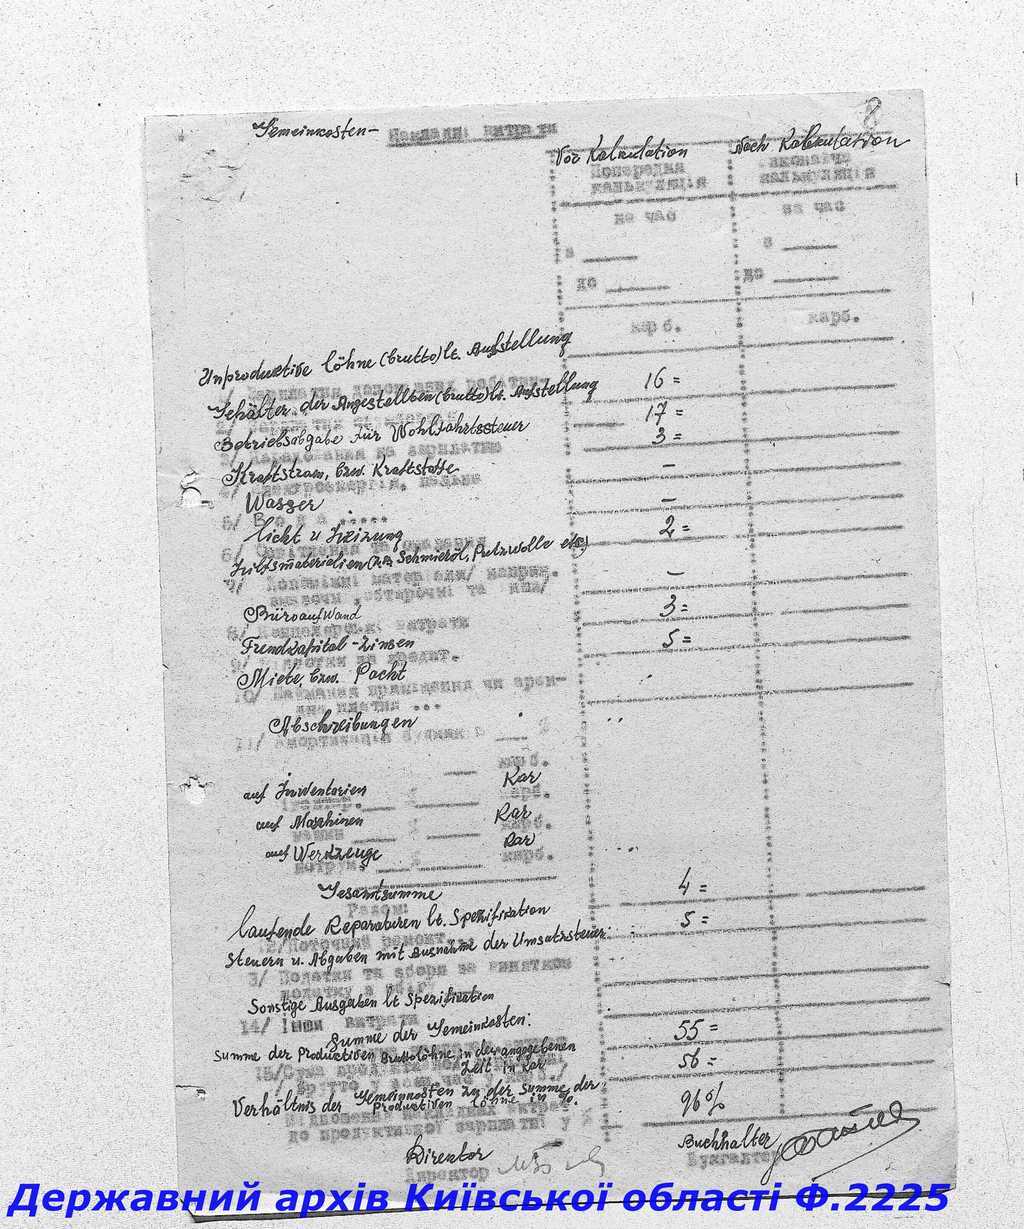 8
Gemeinkosten- Накладні витрати
Vor Kalkulation Nach Kalkulation
Попередня
калькуляція калькуляція
на час за час
з ____ з ____
до ____ до ____
карб. карб.
Unproduktive löhne (brutto) lt. Aufstellung
16 =
Gehälter der Angestellten (brutto) lt. Aufstellung
17 =
Betriebsabgabe für Wohlfahrtssteuer
3 =
на зарплатню
Kraftstrom, bzw. Kraftstoffe
–
4/ Електроенергія, паливо
Wasser
–
5/ Вода .....
licht u Heizung
2 =
6/ Освітлення та
Hilfsmaterialien (z.B. Schmieröl, Putzwolle etc.)
–
7/ Допоміжні матеріали/ наприк.
та инш/
Büroaufwand
3 =
8/ Канцелярські витрати
Fremdkapital-Zinsen
5 =
9/ Відсотки за кредит.
Miete, bzw. Pacht
10/ Наймання приміщення чи арен-
дна платня ...
Abschreibungen
11/ Амортизація будинків ___ %
___ карб.
auf Inventarien Kar
____ % ____ карб.
auf Maschinen Kar
машин ____ % ____ карб.
auf Werkzeuge Kar
____ % ____ карб.
Gesamtsumme
4 =
Разом:
laufende Reparaturen lt. Spezifikation
5 =
12/Поточний ремонт
Steuern u. Abgaben mit Ausnahme der Umsatzsteuer.
13/ Податки та збори за винятком
податку з обігу
Sonstige Ausgaben lt Spezifikation
14/ Інши витрати
Summe der Gemeinkosten:
55 =
Summe der Produktiven Bruttolöhne in der angegebenen
Zeit in Kar
56 =
15/Сума
/ брутто у
Verhältnis der Gemeinkosten zu der Summe der
Produktiven löhne in %.
96%
до продуктивної зарплати у %
Direktor Buchhalter
Директор Бухгалтер
Державний архів Київської області Ф.2225